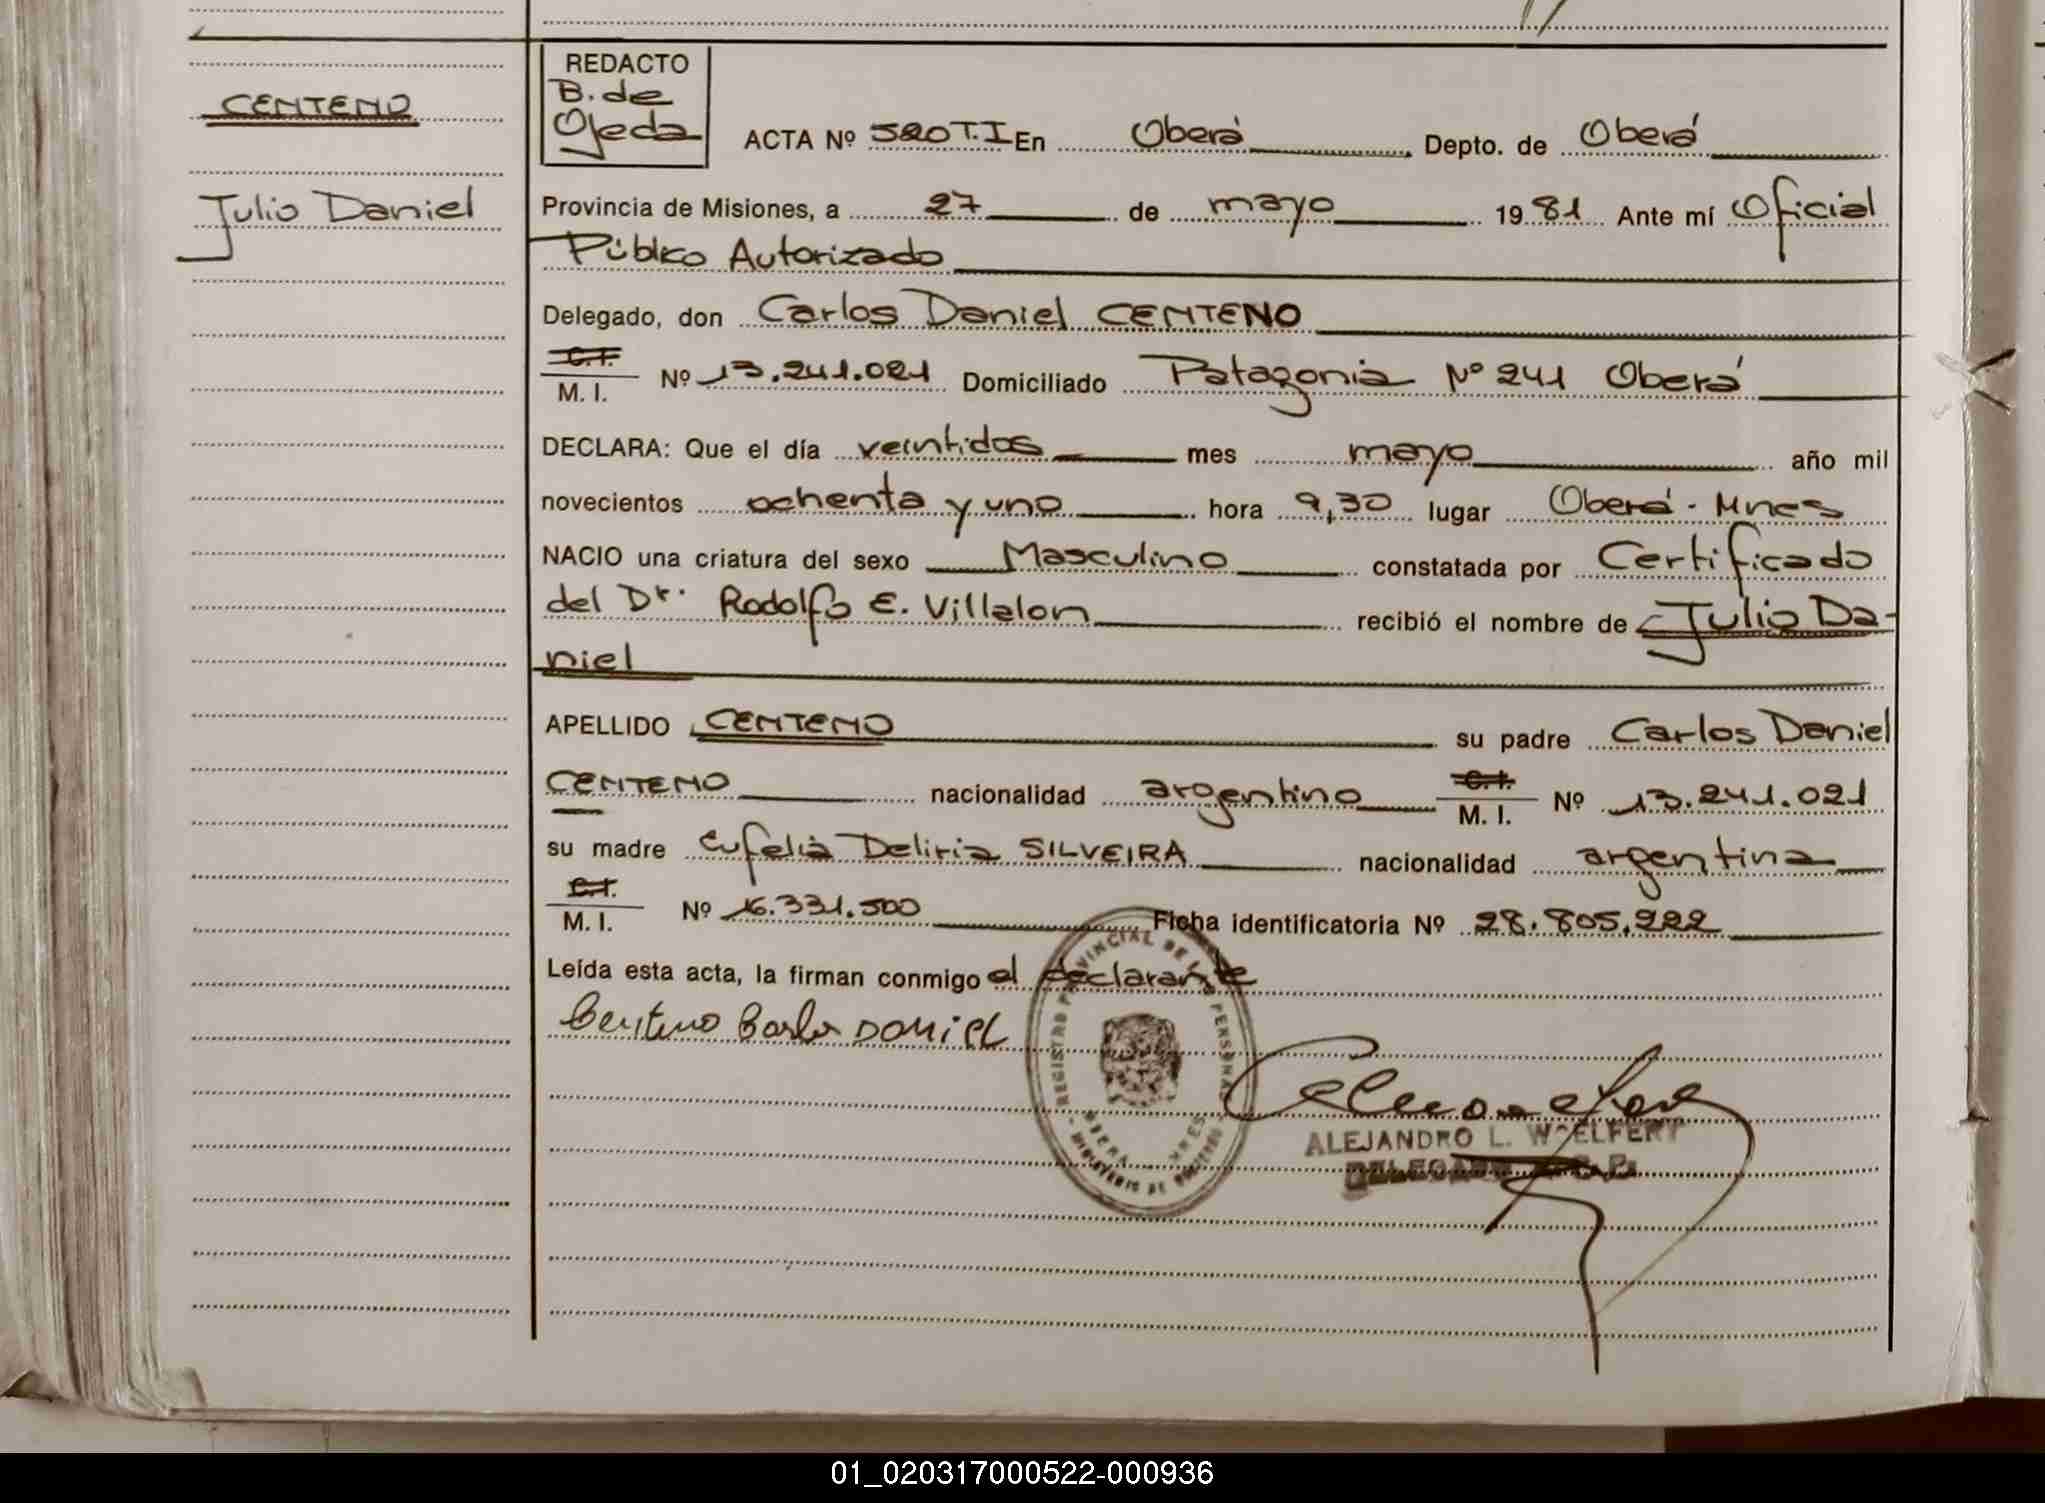 CENTENO
Julio Daniel
REDACTO
B. de
Ojeda
ACTA Nº 520 T.I En Oberá Depto. de Oberá
Provincia de Misiones, a 27 de mayo 1981 Ante mí Oficial
Público Autorizado
Delegado, don Carlos Daniel CENTENO
C.I.
M. I. Nº 13.241.021 Domiciliado Patagonia Nº 241 Oberá
DECLARA: Que el día veintidos mes mayo año mil
novecientos ochenta y uno hora 9,30 lugar Oberá - Mnes
NACIO una criatura del sexo Masculino constatada por Certificado
del Dr. Rodolfo E. Villalon recibió el nombre de Julio Da-
niel
APELLIDO CENTENO su padre Carlos Daniel
CENTENO nacionalidad argentino C.I. M. I. Nº 13.241.021
su madre Eufelia Deliria SILVEIRA nacionalidad argentina
C.I.
M. I. Nº 16.331.500 Ficha identificatoria Nº 28.805.222
Leída esta acta, la firman conmigo el declarante
Centeno Carlos DANIEL
REGISTRO PROVINCIAL DE LAS PERSONAS
OBERA MNES
MINISTERIO DE GOBIERNO
ALEJANDRO L. WOELFERT
DELEGADO R. C. P.
01_020317000522-000936